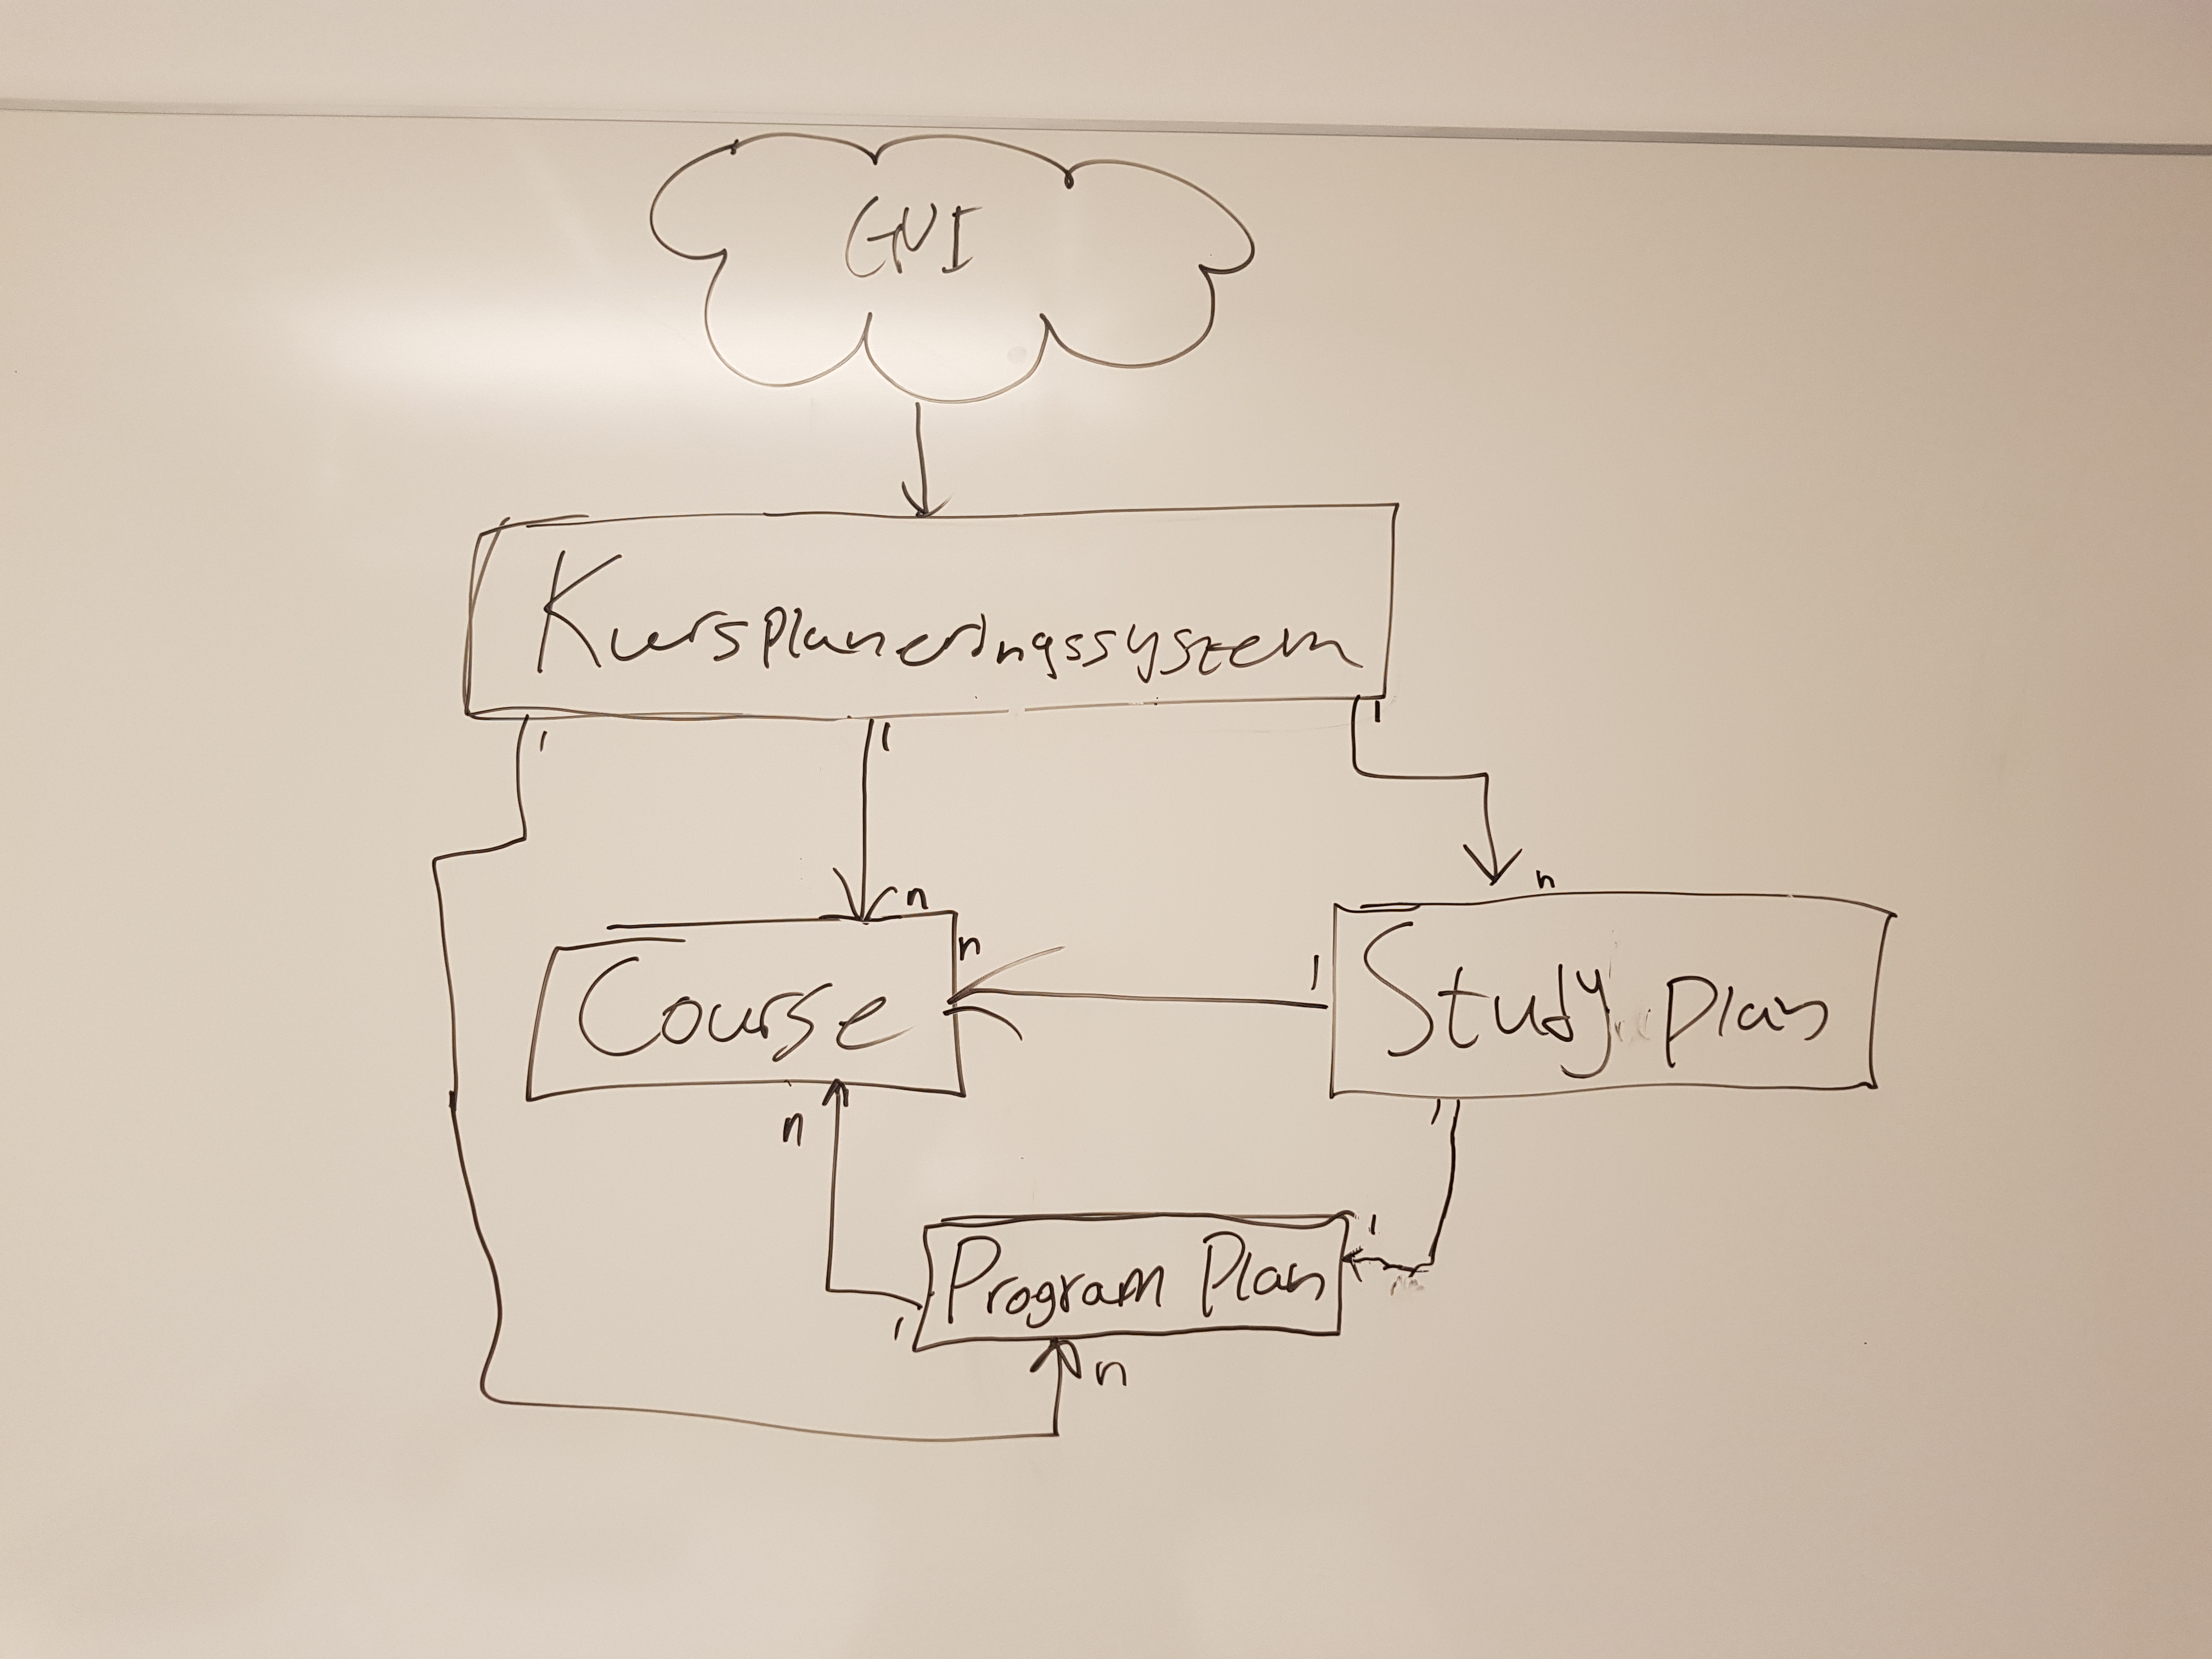 GUI
Kursplaneringssystem
1
1
1
n
n
n
1
Course
Study Plan
n
1
1
Program Plan
1
n